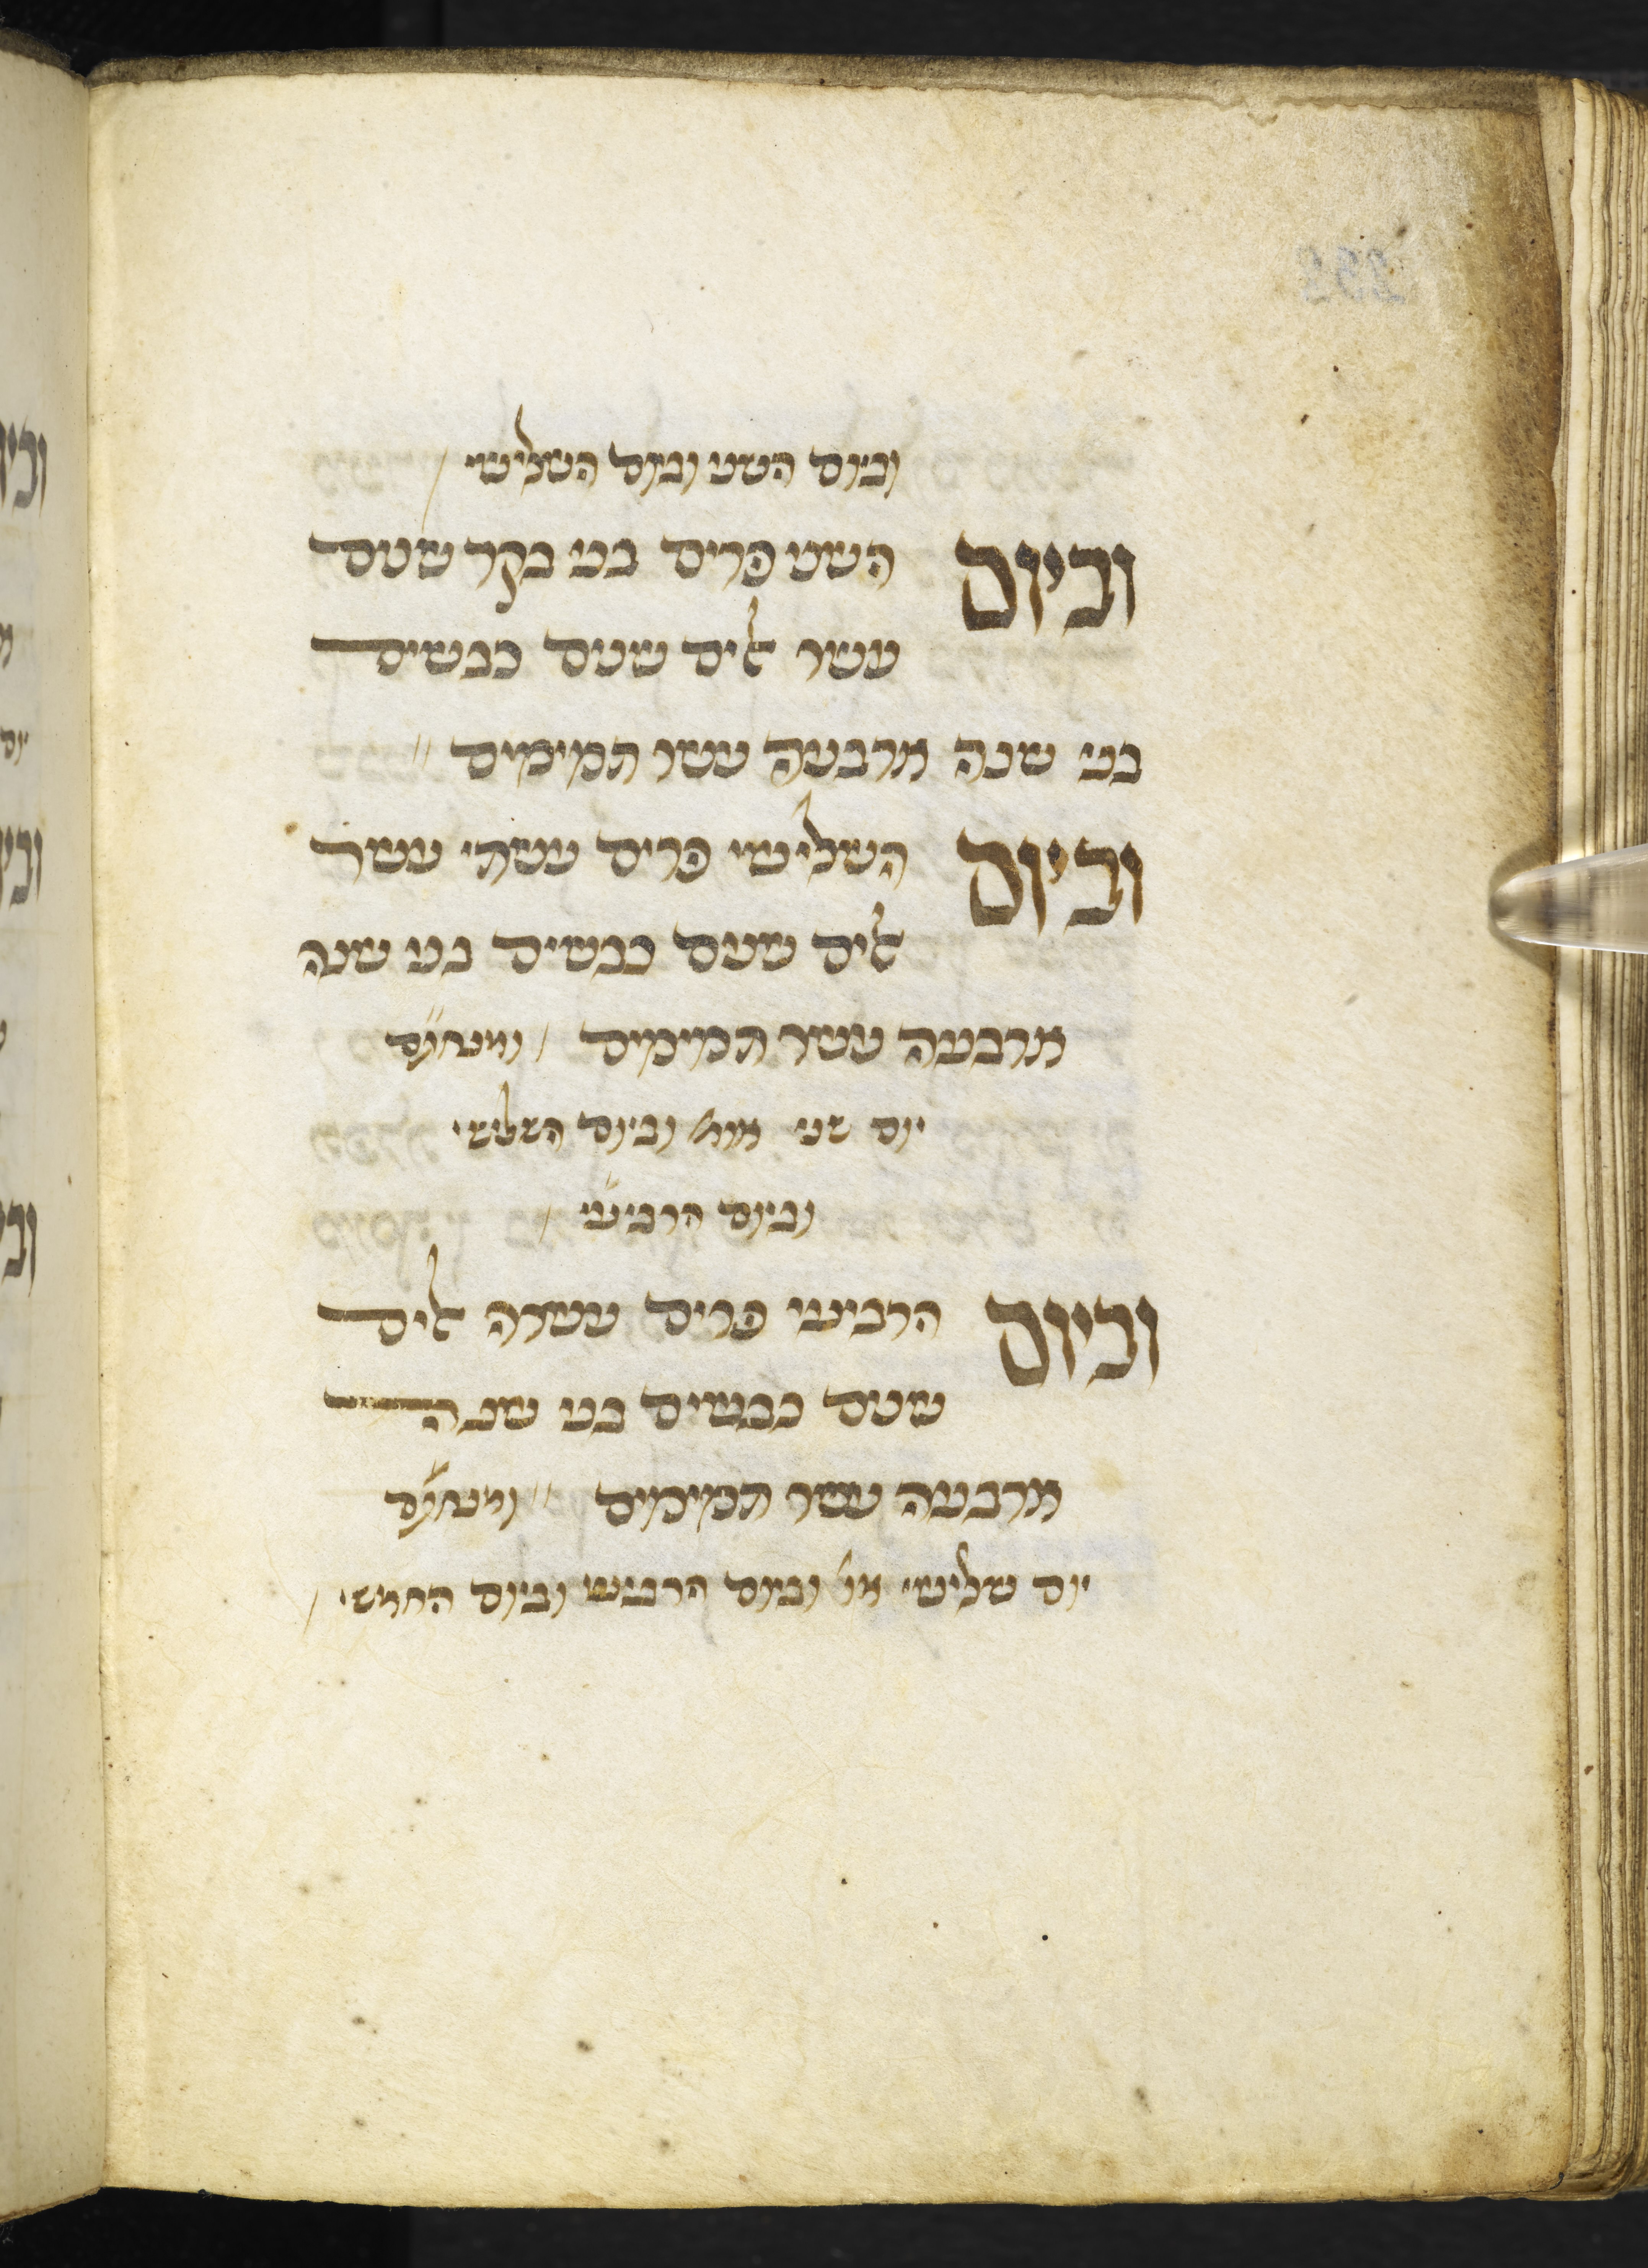 וביום השני וביום השלישי
וביום השני פרים בני בקר שנים
עשר אילים שנים כבשים
בני שנה ארבעה עשר תמימים
וביום השלישי פרים עשתי עשר
אילים שנים כבשים בני שנה
ארבעה עשר תמימים ומנחתם
יום שני או׳ וביום השלישי
וביום הרביעי
וביום הרביעי פרים עשרה אילים
שנים כבשים בני שנה
ארבעה עשר תמימים ומנחתם
יום שלישי או׳ וביום הרביעי וביום החמישי